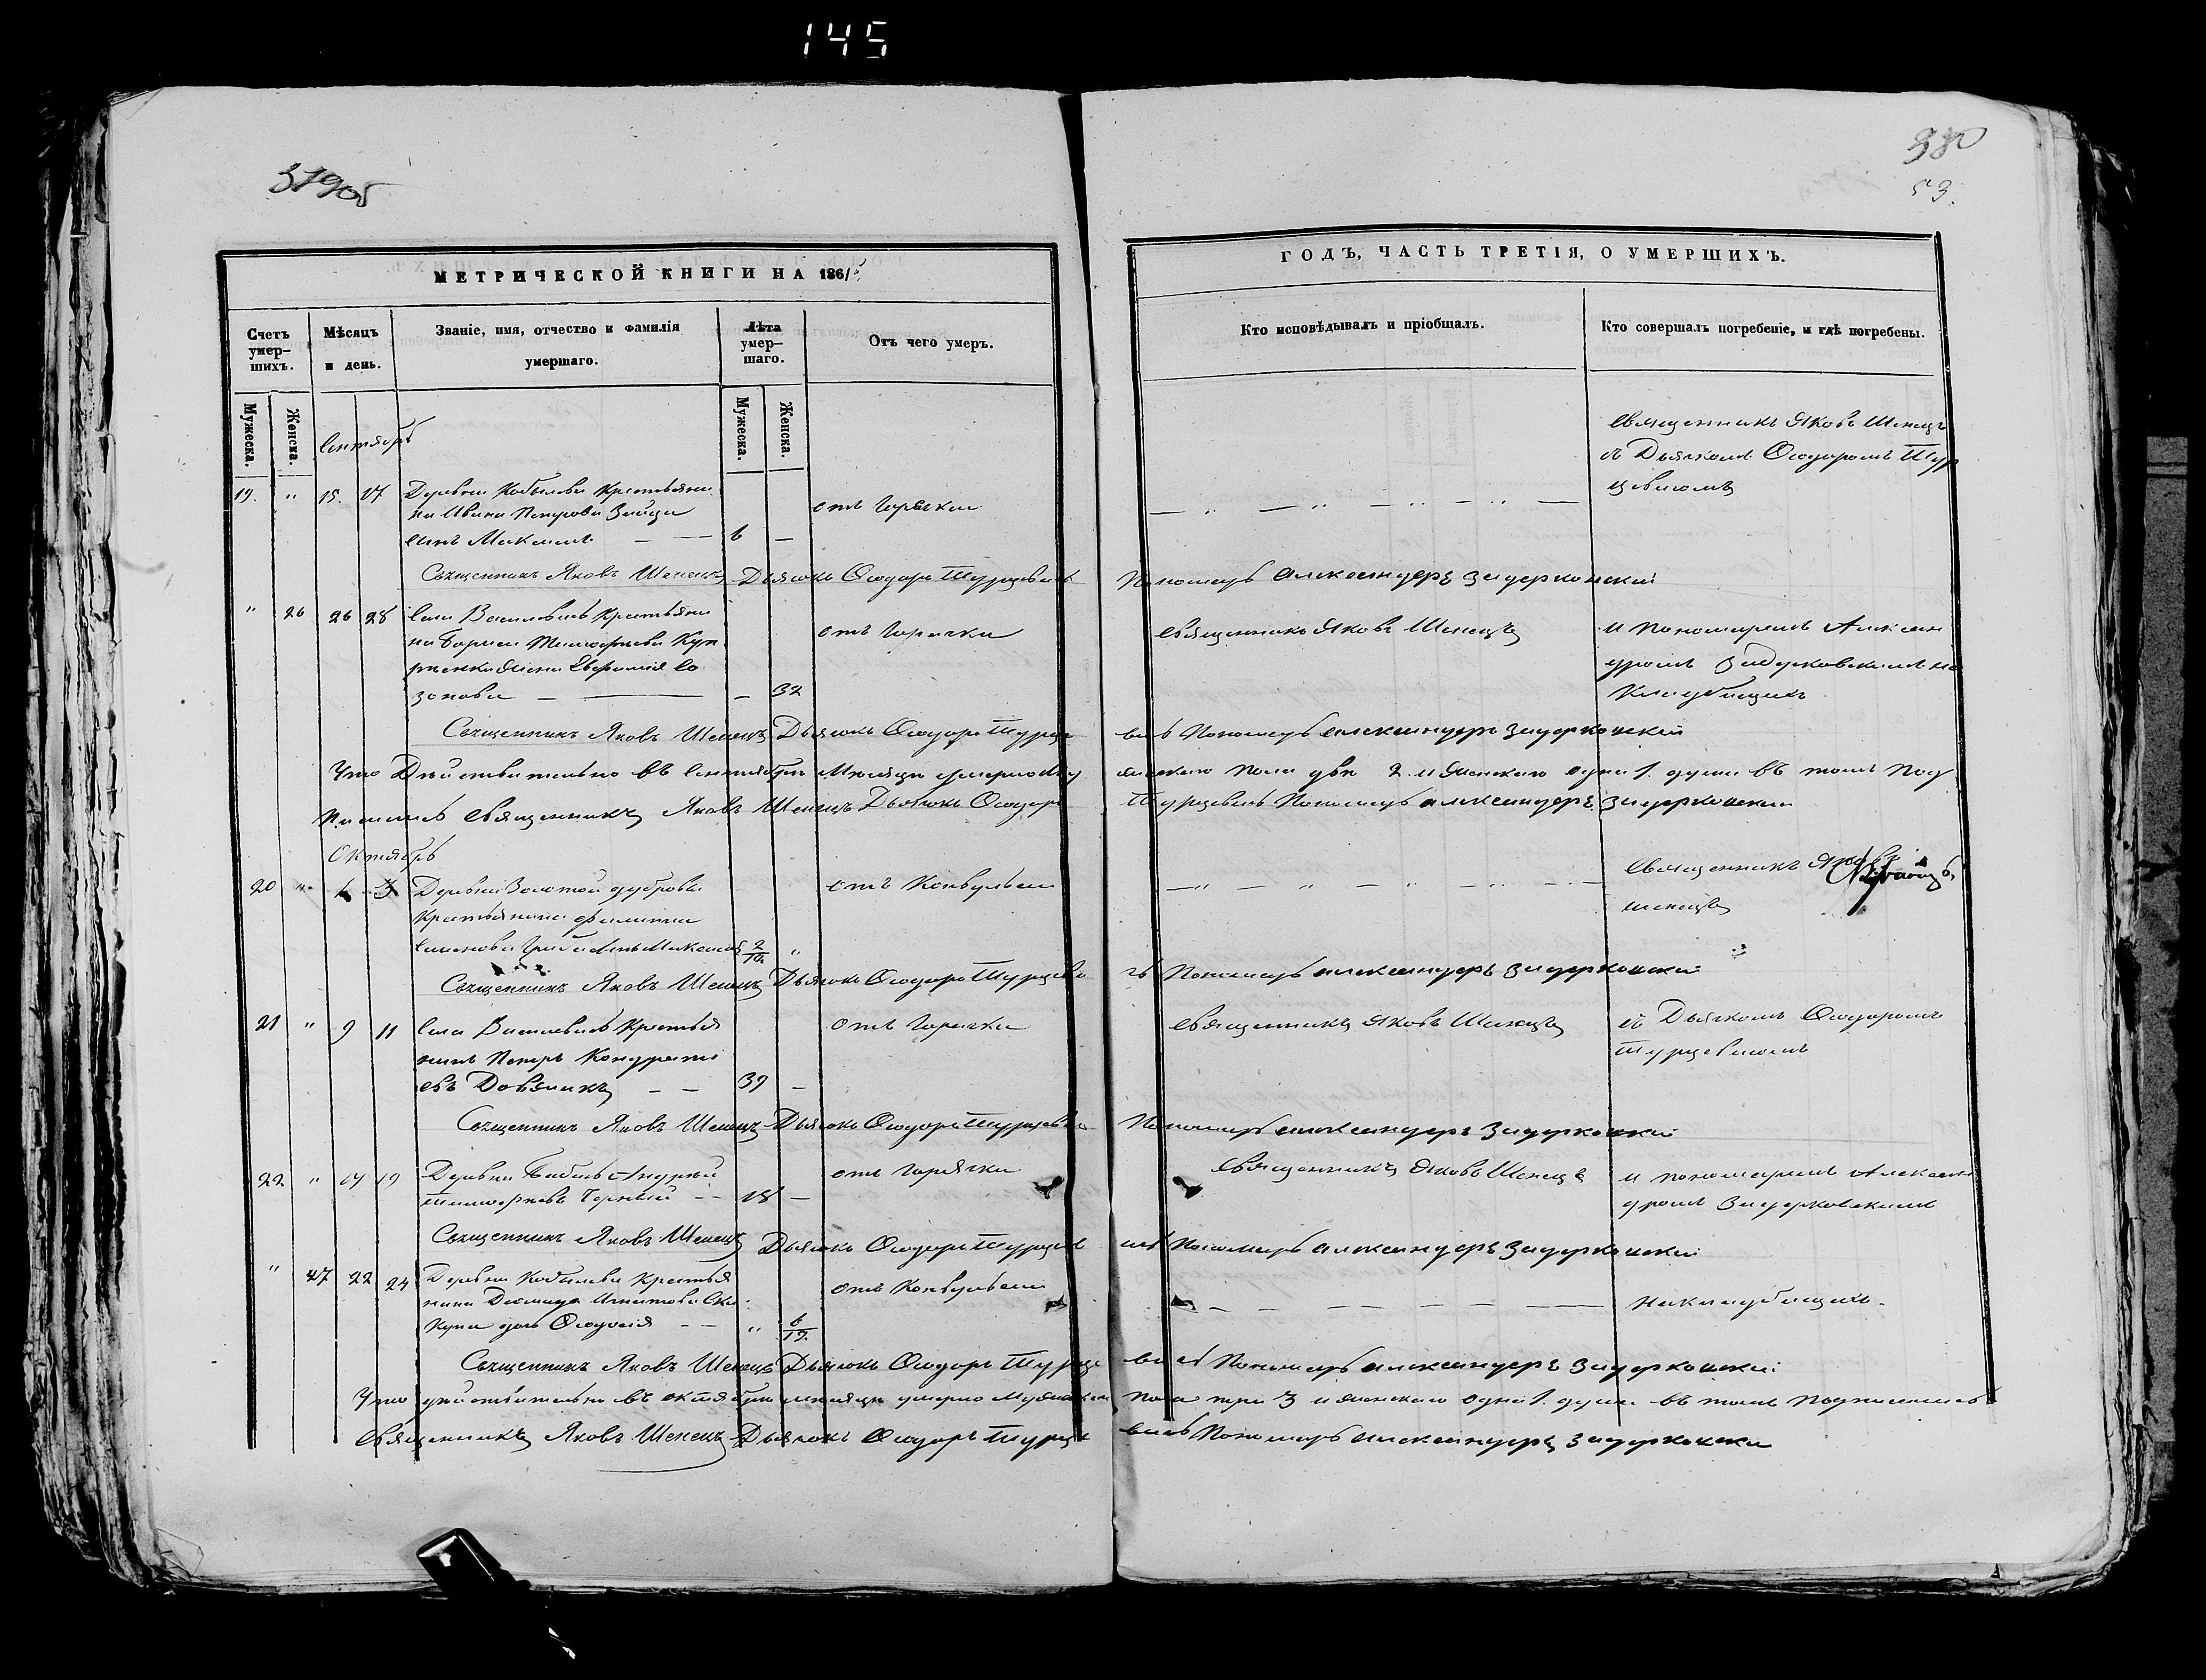 145
380
53.
МЕТРИЧЕСКОЙ КНИГИ НА 1861
ГОДЪ, ЧАСТЬ ТРЕТІЯ, О УМЕРШИХЪ.
Счетъ умер-шихъ.
Мѣсяцъ и день.
Званіе, имя, отчество и фамилія умершаго.
Лѣта умер-шаго.
Отъ чего умеръ.
Кто исповѣдывалъ и пріобщалъ.
Кто совершалъ погребеніе, и гдѣ погребены.
Мужеска.
Женска.
Мужеска.
Женска.
Сентябрь
Священникъ Яковъ Шенецъ
съ Дьячкомъ Ѳеодоромъ Тур
цевичомъ
19. " 15. 17 Деревни Кобылевки Крестьяни
на Ивана Петрова Зайца
сынъ Максимъ — — 6 —
отъ Горячки
Священникъ Яковъ Шенецъ Дьячокъ Ѳеодоръ Турцевичъ Пономарь Александеръ Задерковскій
" 26 26 28 Села Василевичъ Крестьяни
на Тимофеева
жена Евфимія Со
зонова — — — 32
отъ Горячки
Священникъ Яковъ Шенецъ
и Пономаремъ Алексан
дромъ Задерковскимъ на
Кладбищахъ
Священникъ Яковъ Шенецъ Дьячокъ Ѳеодоръ Турце вичъ Пономарь Александеръ Задерковскій
Что Дѣйствительно въ Сентябрѣ Мѣсяцѣ умерло Му жескаго пола двѣ 2. и Женскаго одна 1. душа въ томъ Под
писались Священникъ Яковъ Шенецъ Дьячокъ Ѳеодоръ Турцевичъ Пономарь Александеръ Задерковскій
Октябрь
20 " 1 3 Деревни Золотой дубровы
Крестьянина Филиппа
Семенова сынъ Максимъ 2/10. "
отъ Конвульсіи
Священникъ Яковъ
Шенецъ
Священникъ Яковъ Шенецъ Дьячокъ Ѳеодоръ Турцеви чъ Пономарь Александеръ Задерковскій
21 " 9 11 Села Василевичъ Крестья
нинъ Петръ Кондрати
евъ Довжикъ — — 39 —
отъ Горячки
Священникъ Яковъ Шенецъ
съ Дьячкомъ Ѳеодоромъ
Турцевичомъ
Священникъ Яковъ Шенецъ Дьячокъ Ѳеодоръ Турцевичъ Пономарь Александеръ Задерковскій
22 " 17 19 Деревни Бабичъ Андрей
Тимофеевъ Черный — 18 —
отъ Горячки
Священникъ Яковъ Шенецъ
и Пономаремъ Алексан
дромъ Задерковскимъ
Священникъ Яковъ Шенецъ Дьячокъ Ѳеодоръ Турцев ичъ Пономарь Александеръ Задерковскій
" 27 22 24 Деревни Кобылевки Крестья
нина Игнатова Ска
куна дочь Ѳеодосія — — " 6/12.
отъ Конвульсіи
на кладбищахъ.
Священникъ Яковъ Шенецъ Дьячокъ Ѳеодоръ Турце вичъ Пономарь Александеръ Задерковскій
Что дѣйствительно въ октябрѣ мѣсяцѣ умерло Мужескаго Пола три 3 и женскаго одна 1. душа въ томъ подписались
Священникъ Яковъ Шенецъ Дьячокъ Ѳеодоръ Турце вичъ Пономарь Александеръ Задерковскій